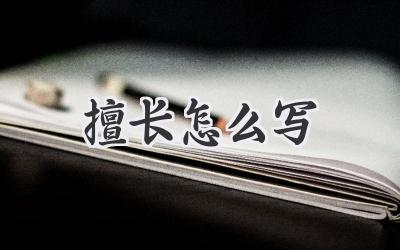 擅长怎么写